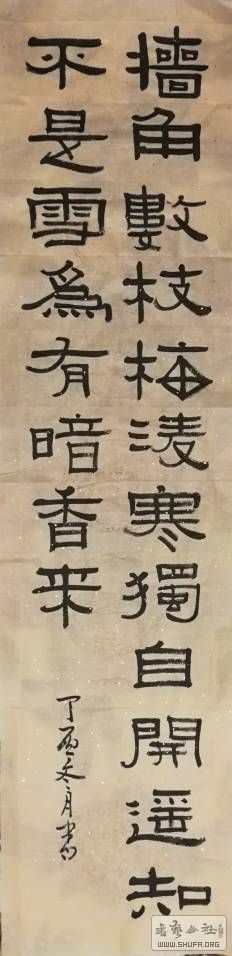 墻角數枝梅淩寒獨自開遥知
不是雪爲有暗香来
丁酉冬月書
書藝公社
WWW.SHUFA.ORG